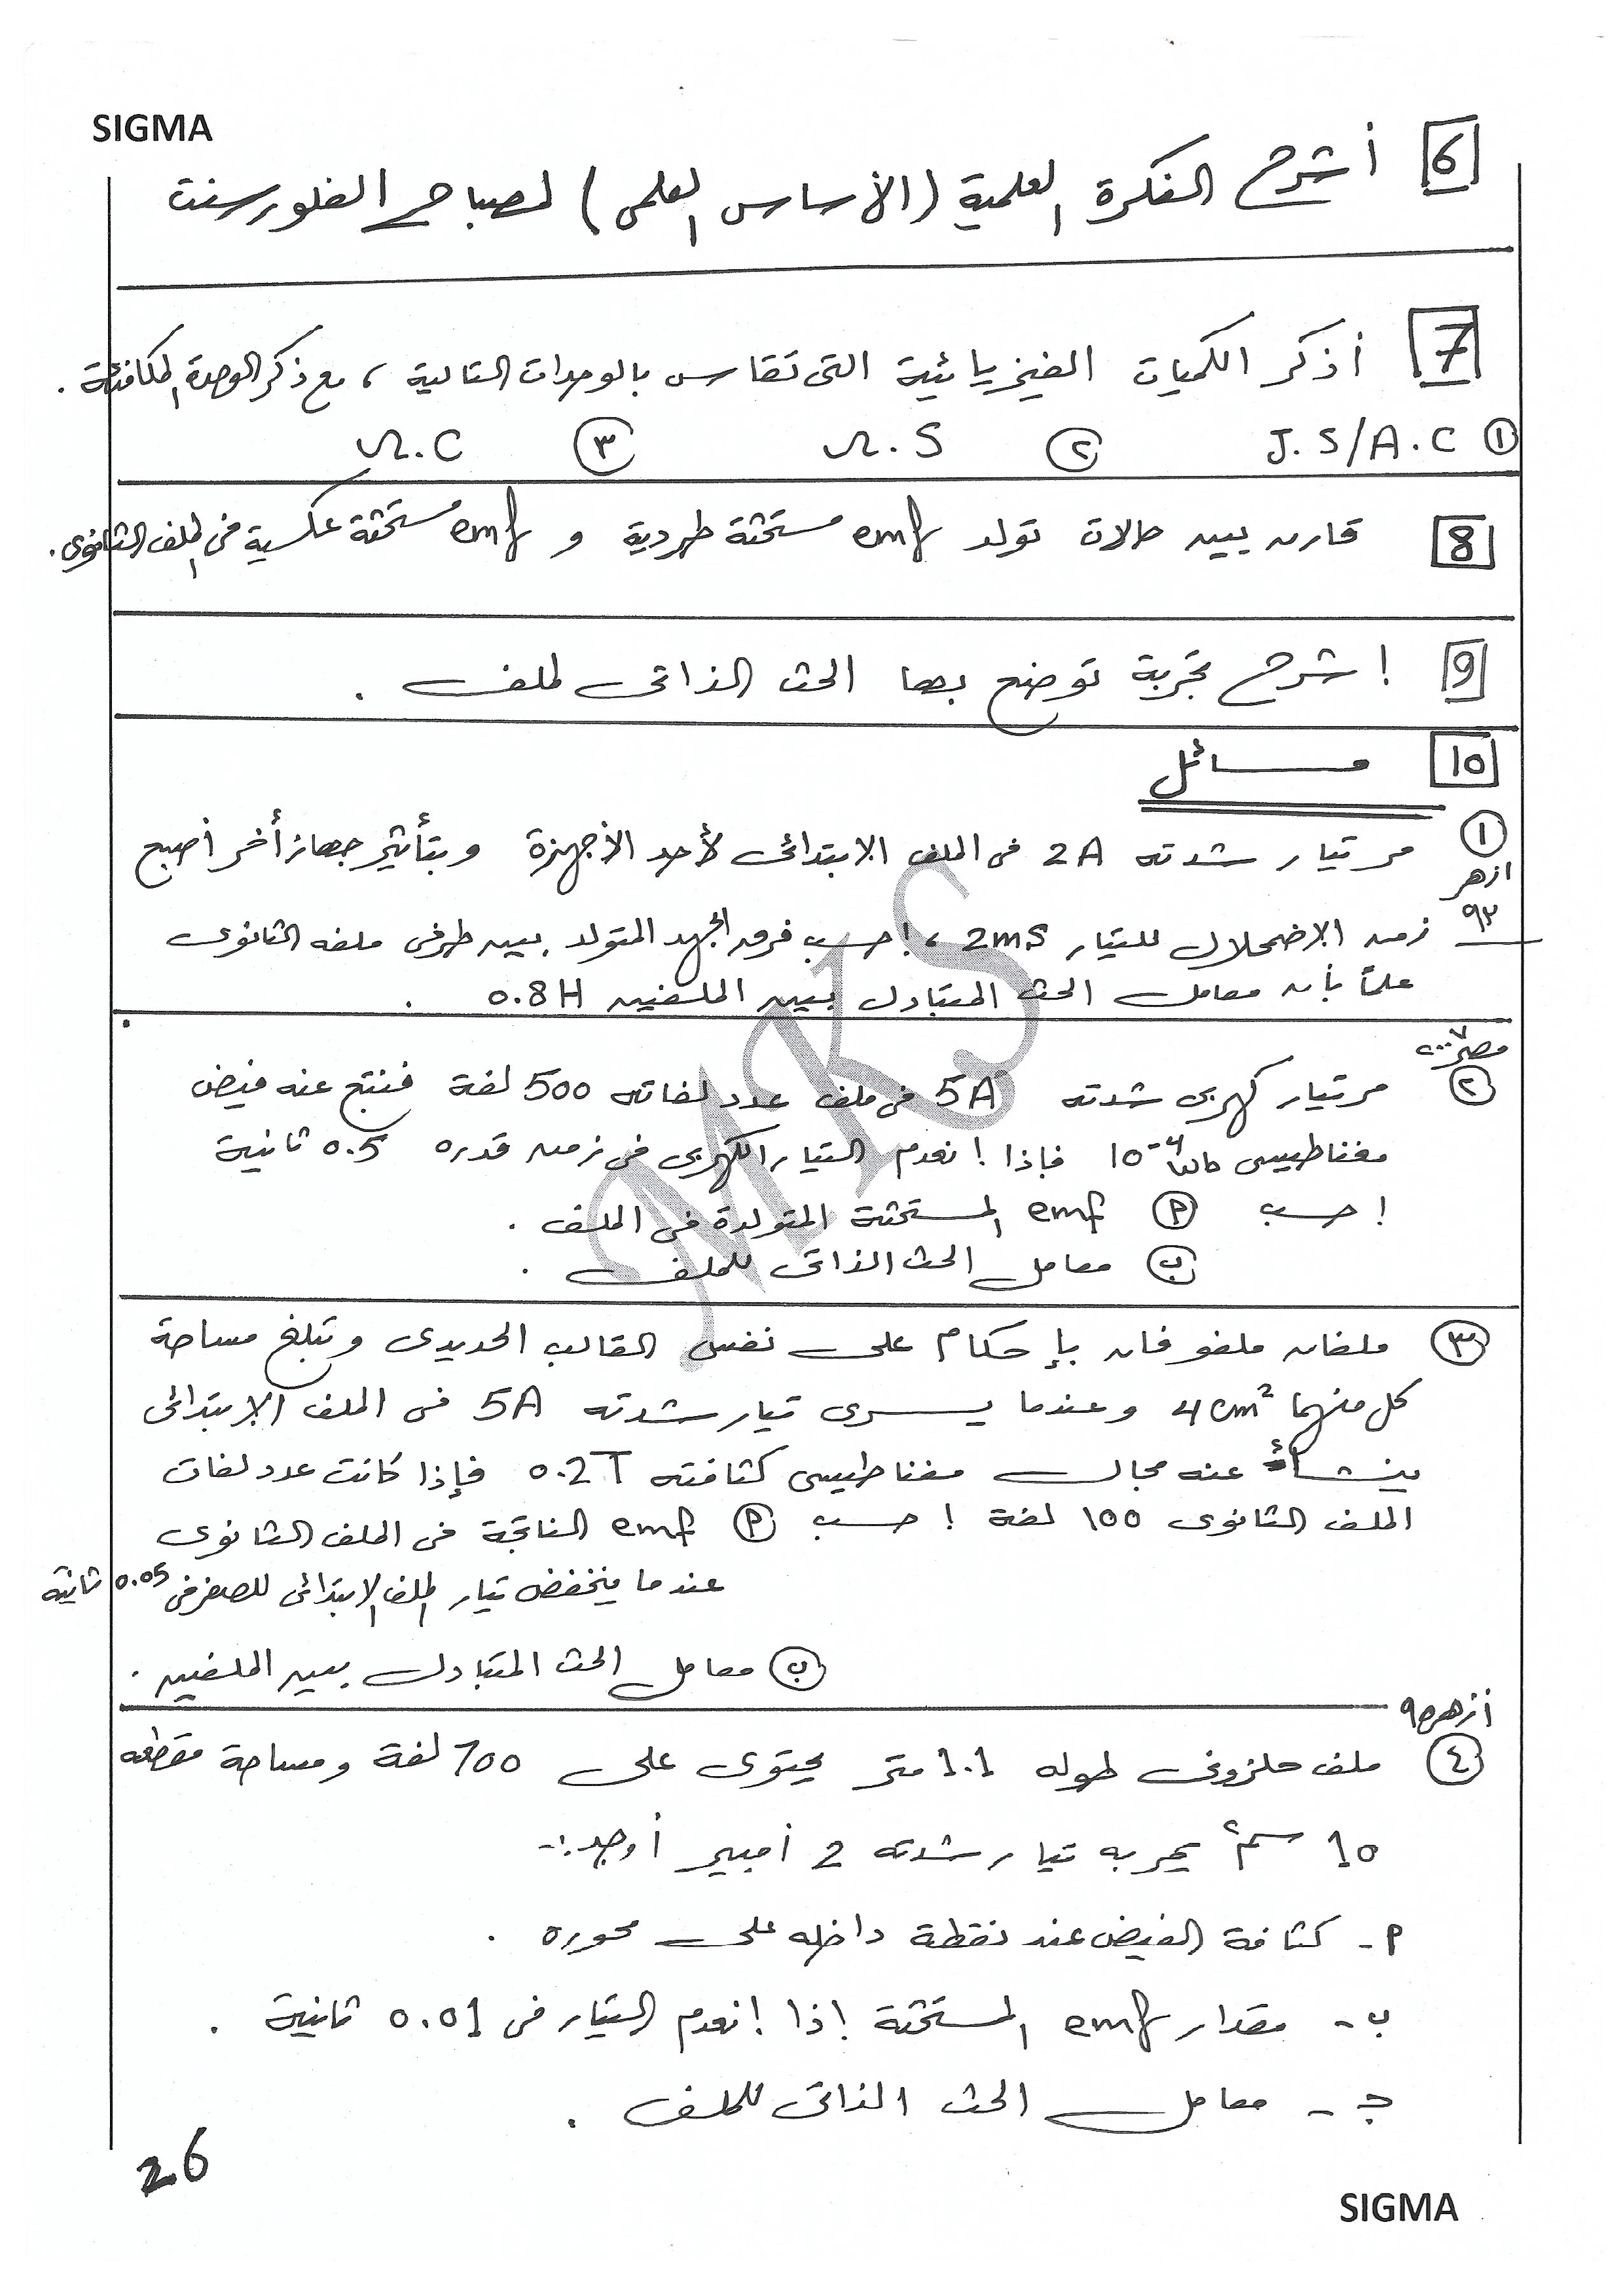 SIGMA
6 أشرح الفكرة العلمية (الأساس العلمى) لمصباح الفلورسنت
7 أذكر الكميات الفيزيائية التى تقاس بالوحدات التالية ، مع ذكر الوحدة المكافئة .
① J.S/A.C ② Ω.S ③ Ω.C
8 قارن بين حالات تولد emf مستحثة طردية و emf مستحثة عكسية فى الملف الثانوى .
9 إشرح تجربة توضح بها الحث الذاتى لملف .
10 مسائل
① مر تيار شدته 2A فى الملف الابتدائى لأحد الأجهزة وبتأثير جهاز أخر أصبح
ازهر ٩٢
زمن الاضمحلال للتيار 2mS ، إحسب فرق الجهد المتولد بين طرفى ملفه الثانوى
علماً بأن معامل الحث المتبادل بين الملفين 0.8H .
مصر ٢٠٠٧
② مر تيار كهربى شدته 5A فى ملف عدد لفاته 500 لفة فنتج عنه فيض
مغناطيسى 10⁻⁴ فإذا إنعدم التيار الكهربى فى زمن قدره 0.5 ثانية
إحسب ⓐ emf المستحثة المتولدة فى الملف .
ⓑ معامل الحث الذاتى للملف .
③ ملفان ملفوفان بإحكام على نفس القالب الحديدى وتبلغ مساحة
كل منهما 4cm² وعندما يسرى تيار شدته 5A فى الملف الإبتدائى
ينشأ عنه مجال مغناطيسى كثافته 0.2T فإذا كانت عدد لفات
الملف الثانوى 100 لفة إحسب ⓐ emf الناتجة فى الملف الثانوى
عندما ينخفض تيار الملف الإبتدائى للصفر فى 0.05 ثانية
ⓑ معامل الحث المتبادل بين الملفين .
أزهر ٩٥
④ ملف حلزونى طوله 1.1 متر يحتوى على 700 لفة ومساحة مقطعه
10 سم² يمر به تيار شدته 2 أمبير أوجد :-
أ - كثافة الفيض عند نقطة داخله على محوره .
ب - مقدار emf المستحثة إذا إنعدم التيار فى 0.01 ثانية .
جـ - معامل الحث الذاتى للملف .
26
SIGMA
MKS